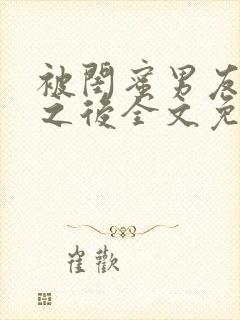 被閨蜜男友
之後全文免
崔歡